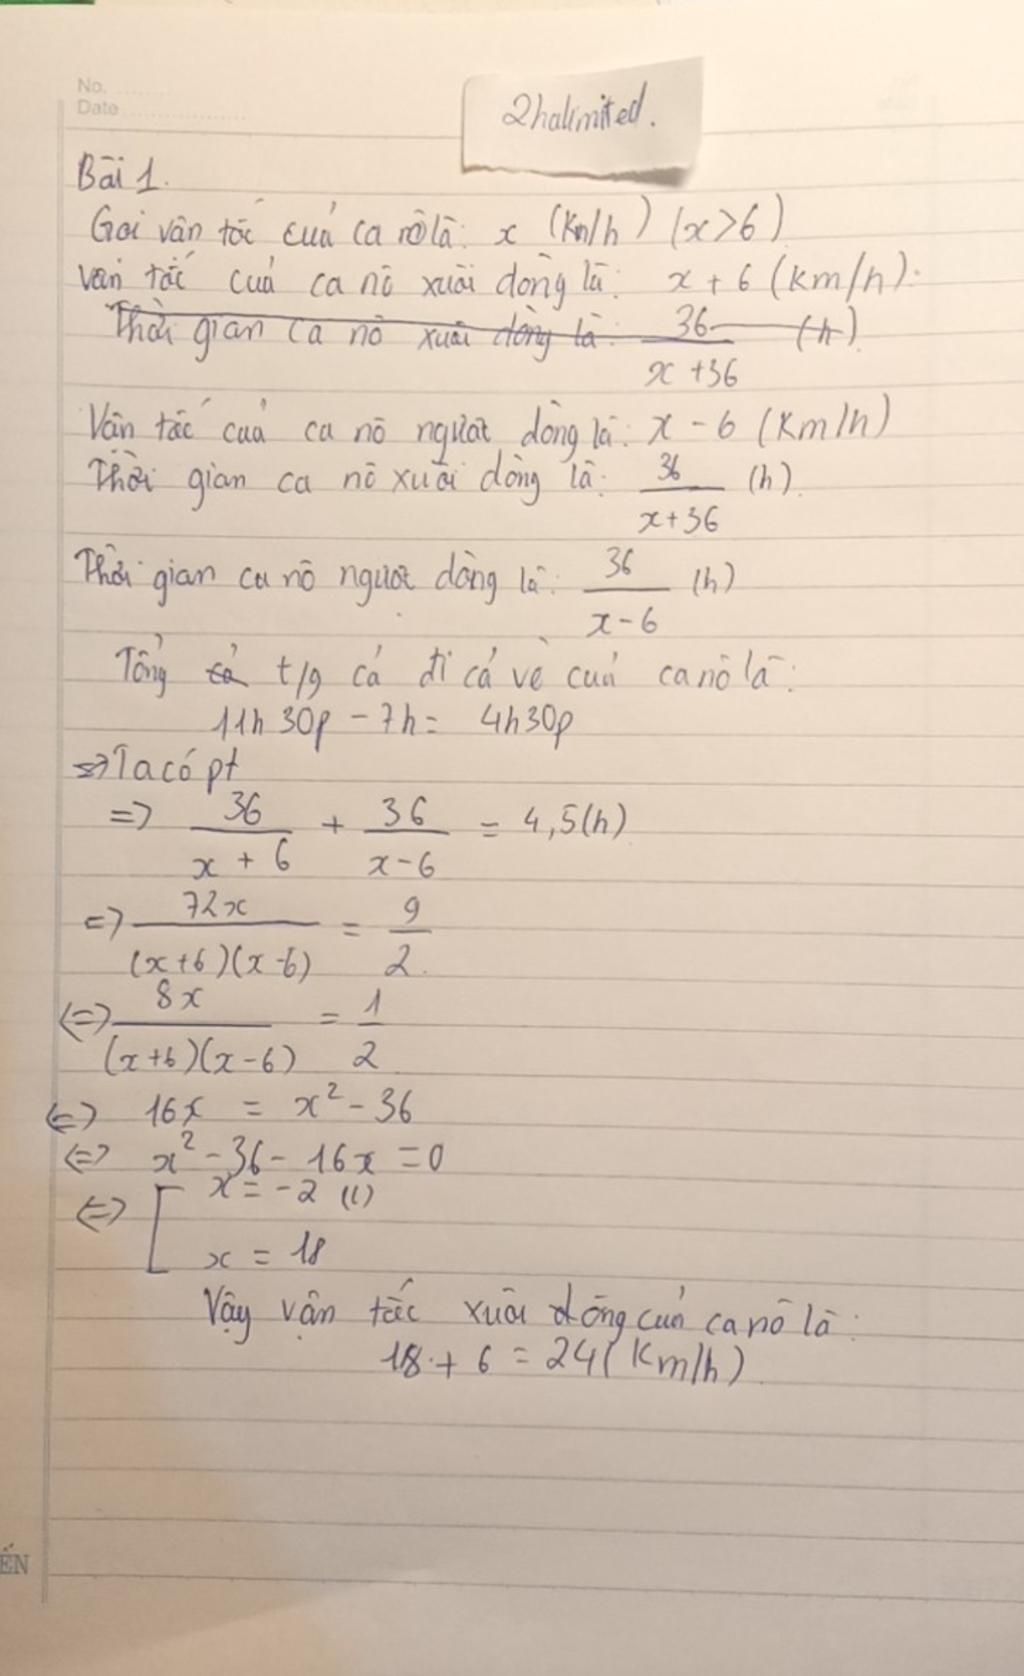 No.
Date
2halimited.
Bài 1.
Gọi vận tốc của ca nô là: x (km/h) (x>6)
Vận tốc của ca nô xuôi dòng là: x + 6 (km/h).
Thời gian ca nô xuôi dòng là: 36/(x+36) (h).
Vận tốc của ca nô ngược dòng là: x - 6 (km/h)
Thời gian ca nô xuôi dòng là: 36/(x+36) (h).
Thời gian ca nô ngược dòng là: 36/(x-6) (h)
Tổng cả t/g cả đi cả về của ca nô là:
11h 30p - 7h = 4h30p
=> Ta có pt
=> 36/(x + 6) + 36/(x-6) = 4,5(h)
=> 72x/((x+6)(x-6)) = 9/2.
<=> 8x/((x+6)(x-6)) = 1/2
<=> 16x = x² - 36
<=> x² - 36 - 16x = 0
<=> [ x = -2 (l)
x = 18
Vậy vận tốc xuôi dòng của ca nô là:
18 + 6 = 24 (km/h).
ẾN